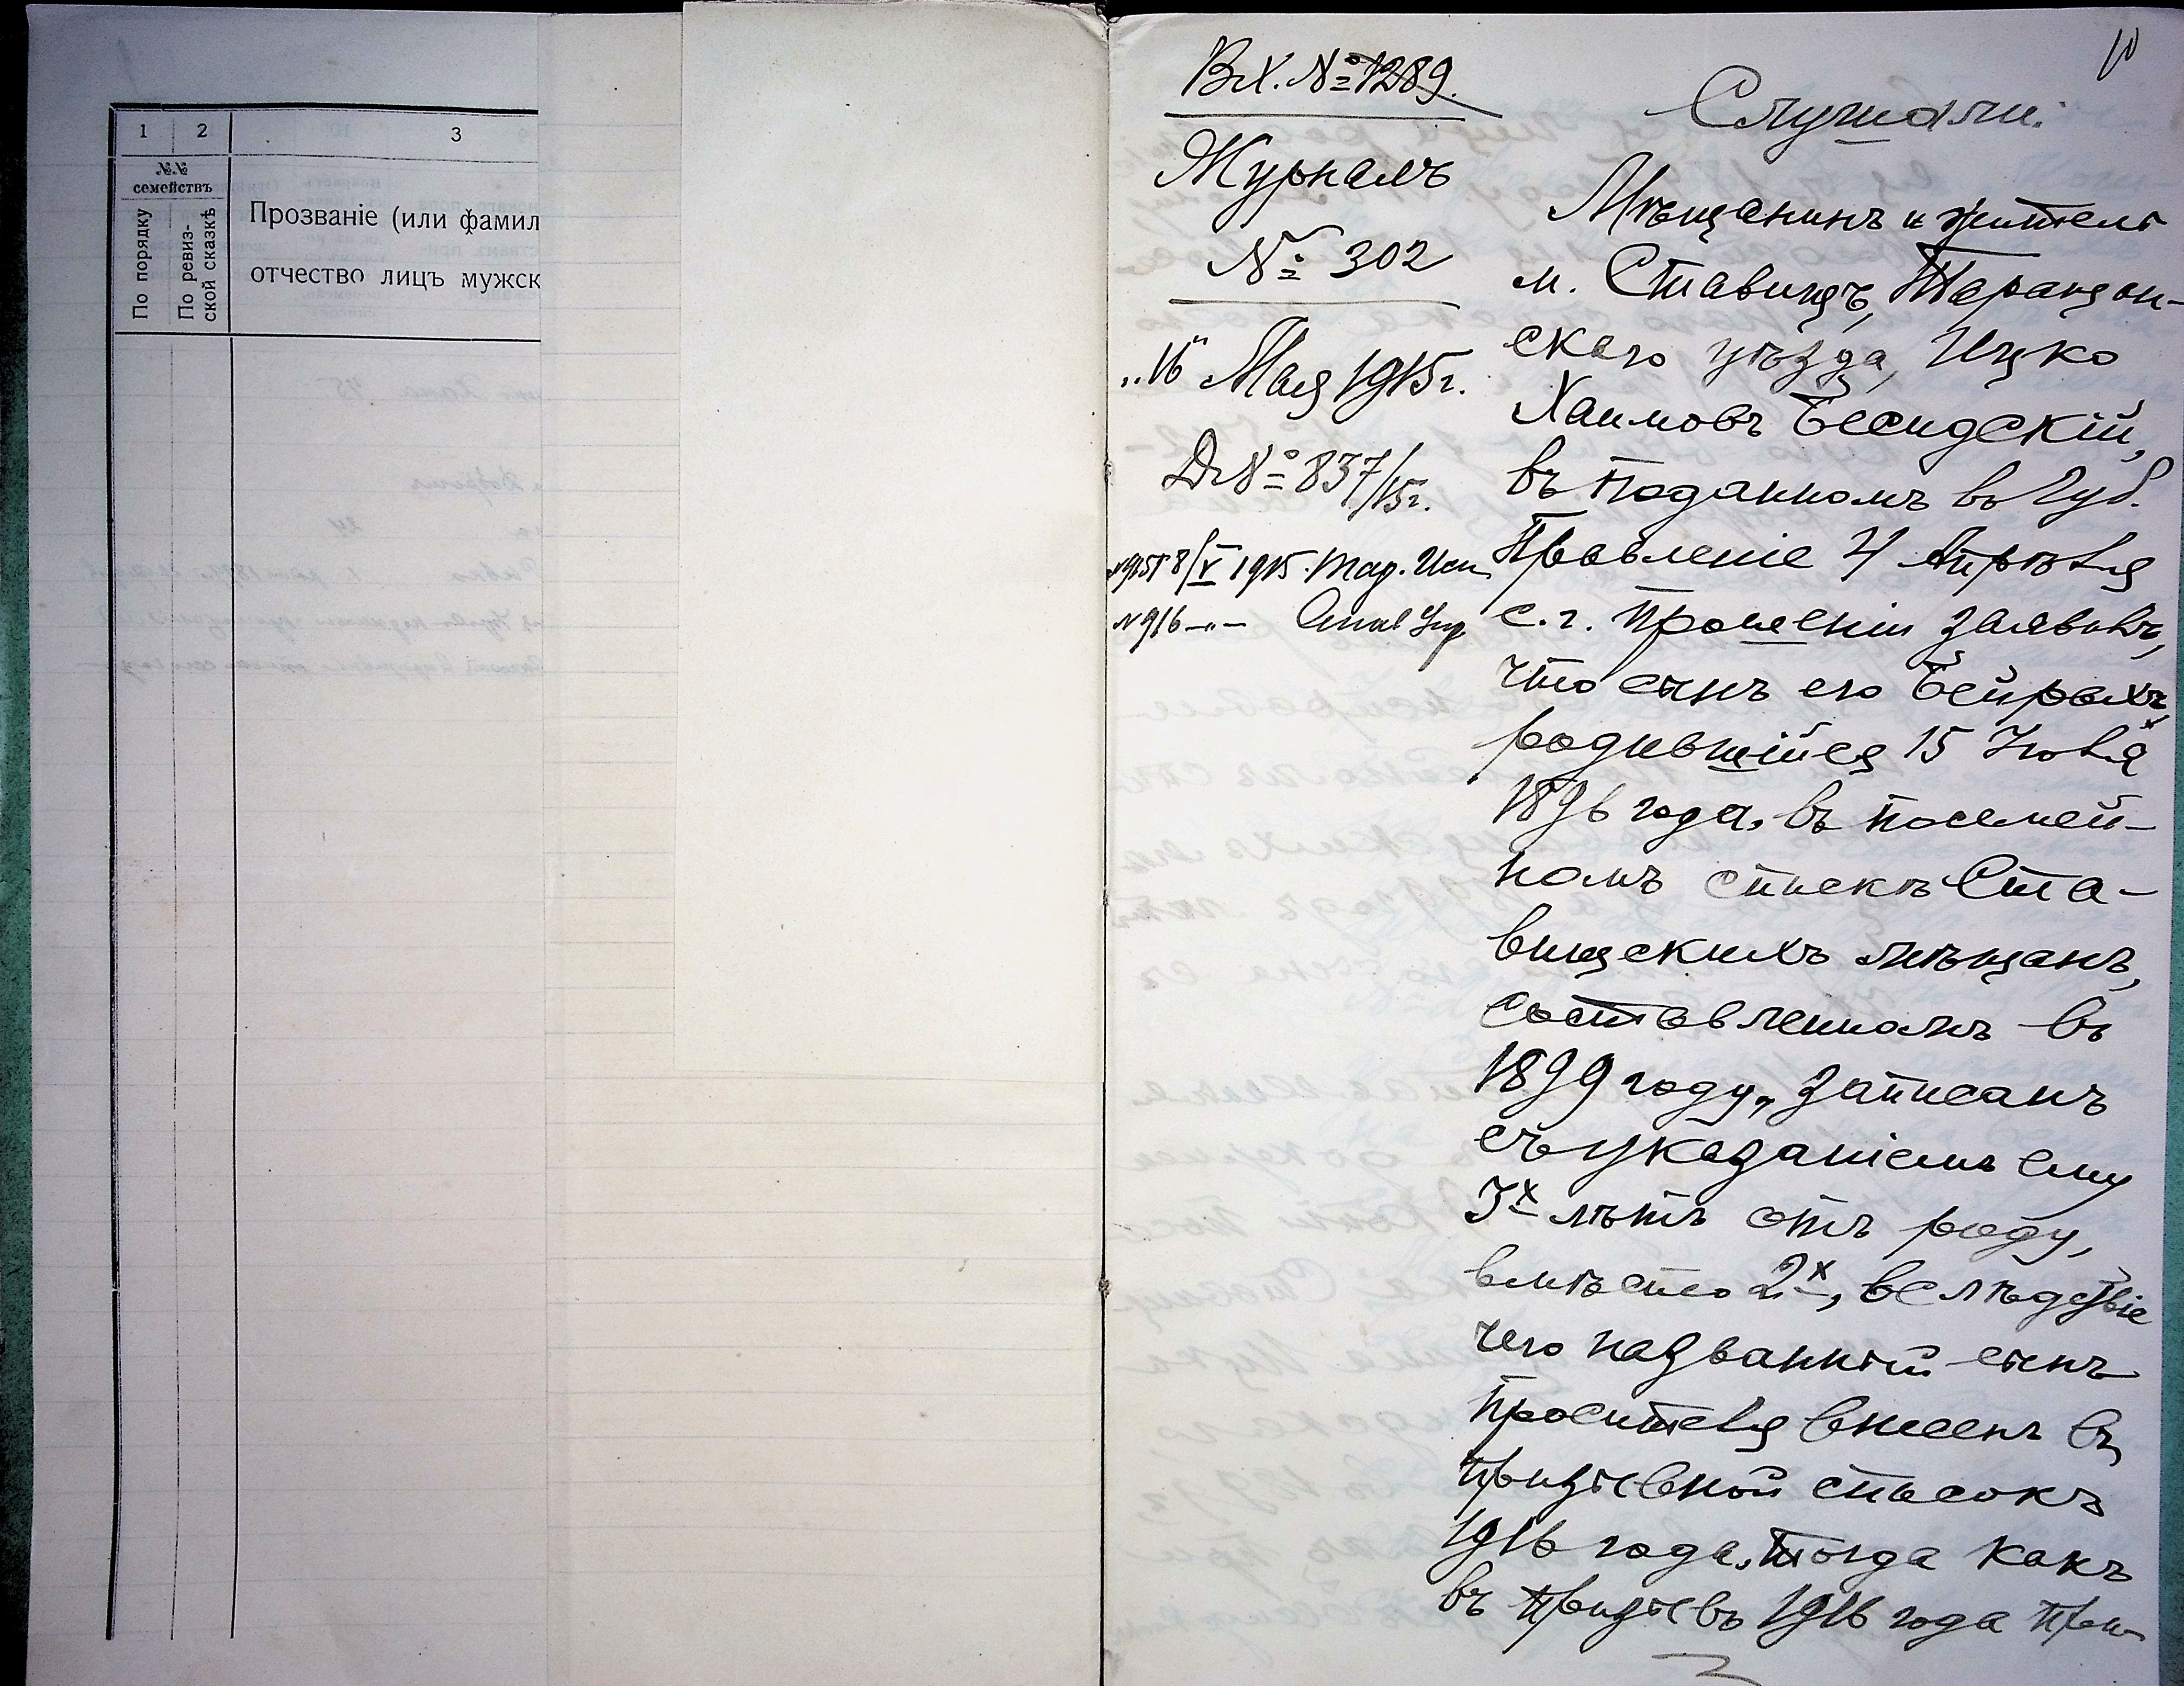 1 2 3
№№
семействъ
По порядку
По ревиз-
ской сказкѣ
Прозваніе (или фамил
отчество лицъ мужск
10
Вх. № 1289.
Журналъ
№ 302
"16" Мая 1915 г.
Д № 837/15 г.
8/V 1915.
№ 916 —"—
Слушали:
Мѣщанинъ и житель
м. Ставищъ, Таращан-
скаго уѣзда, Ицко
Хаимовъ Бесидскій,
въ поданномъ въ Губ.
Правленіе 4 Апрѣля
с. г. прошеніи заявилъ,
что сынъ его Бейрахъ,
родившійся 15 Іюля
1896 года, въ посемей-
номъ спискѣ Ста-
вищскихъ мѣщанъ,
составленномъ въ
1899 году, записанъ
съ указаніемъ ему
3х лѣтъ отъ роду,
вмѣсто 2х, вслѣдствіе
чего названный сынъ
просителя внесенъ въ
призывной списокъ
1916 года, тогда какъ
въ призывъ 1916 года при-